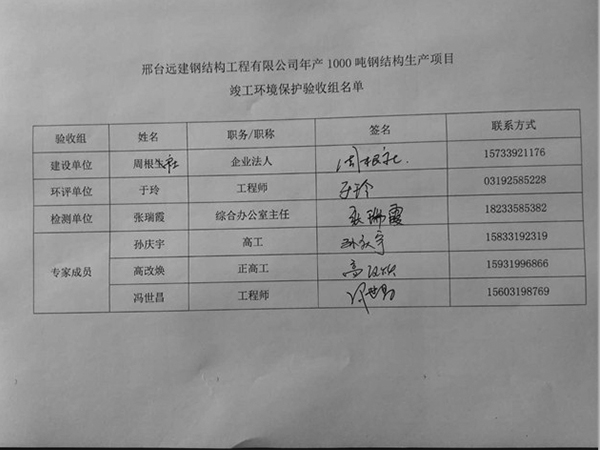 邢台远建钢结构工程有限公司年产 1000 吨钢结构生产项目
竣工环境保护验收组名单
验收组 姓名 职务/职称 签名 联系方式
建设单位 周根社 企业法人 周根社 15733921176
环评单位 于玲 工程师 于玲 03192585228
检测单位 张瑞霞 综合办公室主任 张瑞霞 18233585382
孙庆宇 高工 孙庆宇 15833192319
专家成员 高改焕 正高工 高改焕 15931996866
冯世昌 工程师 冯世昌 15603198769